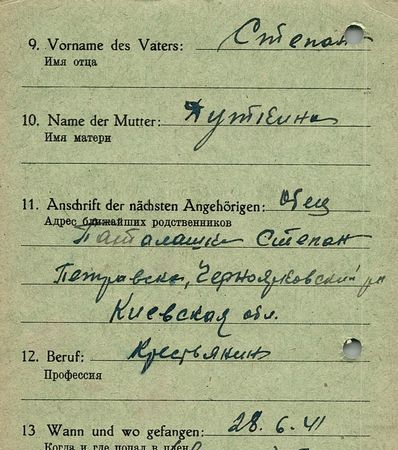 9. Vorname des Vaters: Степан
Имя отца
10. Name der Mutter: Путкина
Имя матери
11. Anschrift der nächsten Angehörigen: Отец
Адрес ближайших родственников
Степан
Петравска, р-н
Киевская обл.
12. Beruf: Крестьянин
Профессия
13 Wann und wo gefangen: 28. 6. 41
Когда и где попал в плен